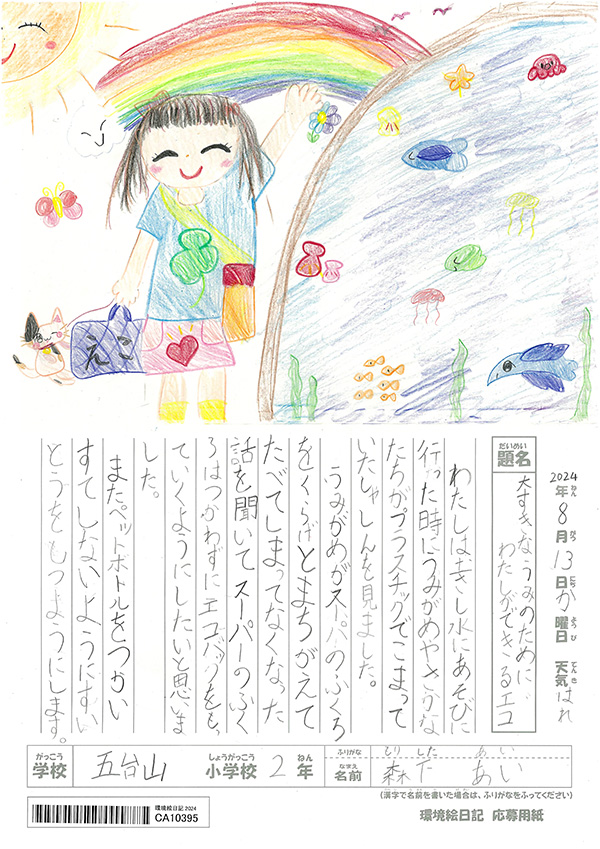 えこ
2024年8月13日か曜日 天気はれ
ねん がつ にち ようび てんき
だいめい
題名
大すきなうみのために、
わたしができるエコ
わたしは土きし水にあそびに
行った時にうみがめやさかな
たちがプラスチックでこまって
いたしゃしんを見ました。
うみがめがスーパーのふくろ
をくらげとまちがえて
たべてしまってなくなった
話を聞いてスーパーのふく
ろはつかわずにエコバックをもっ
ていくようにしたいと思いま
した。
またペットボトルをつかい
すてしないようにすい
とうをもつようにします。
がっこう しょうがっこう ねん
学校 五台山 小学校 2年
ふりがな もりした あい
なまえ
名前 森下 あい
(漢字で名前を書いた場合は、ふりがなをふってください)
環境絵日記 2024
CA10395
環境絵日記 応募用紙